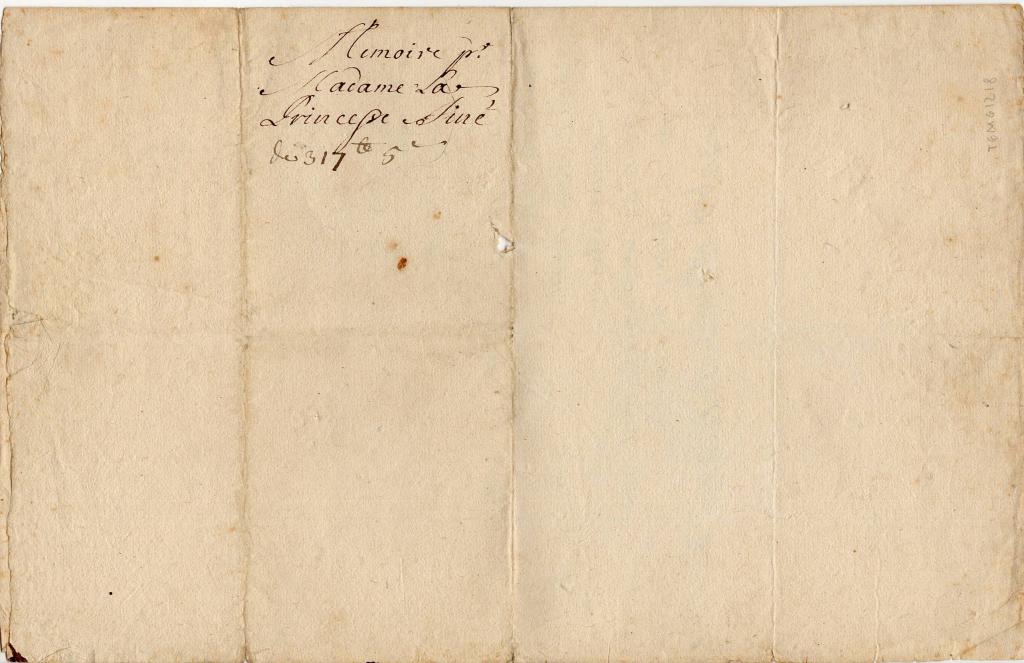 Memoire pr.
Madame La
Princesse Siné
de 317 lt 5 s
TGM61218